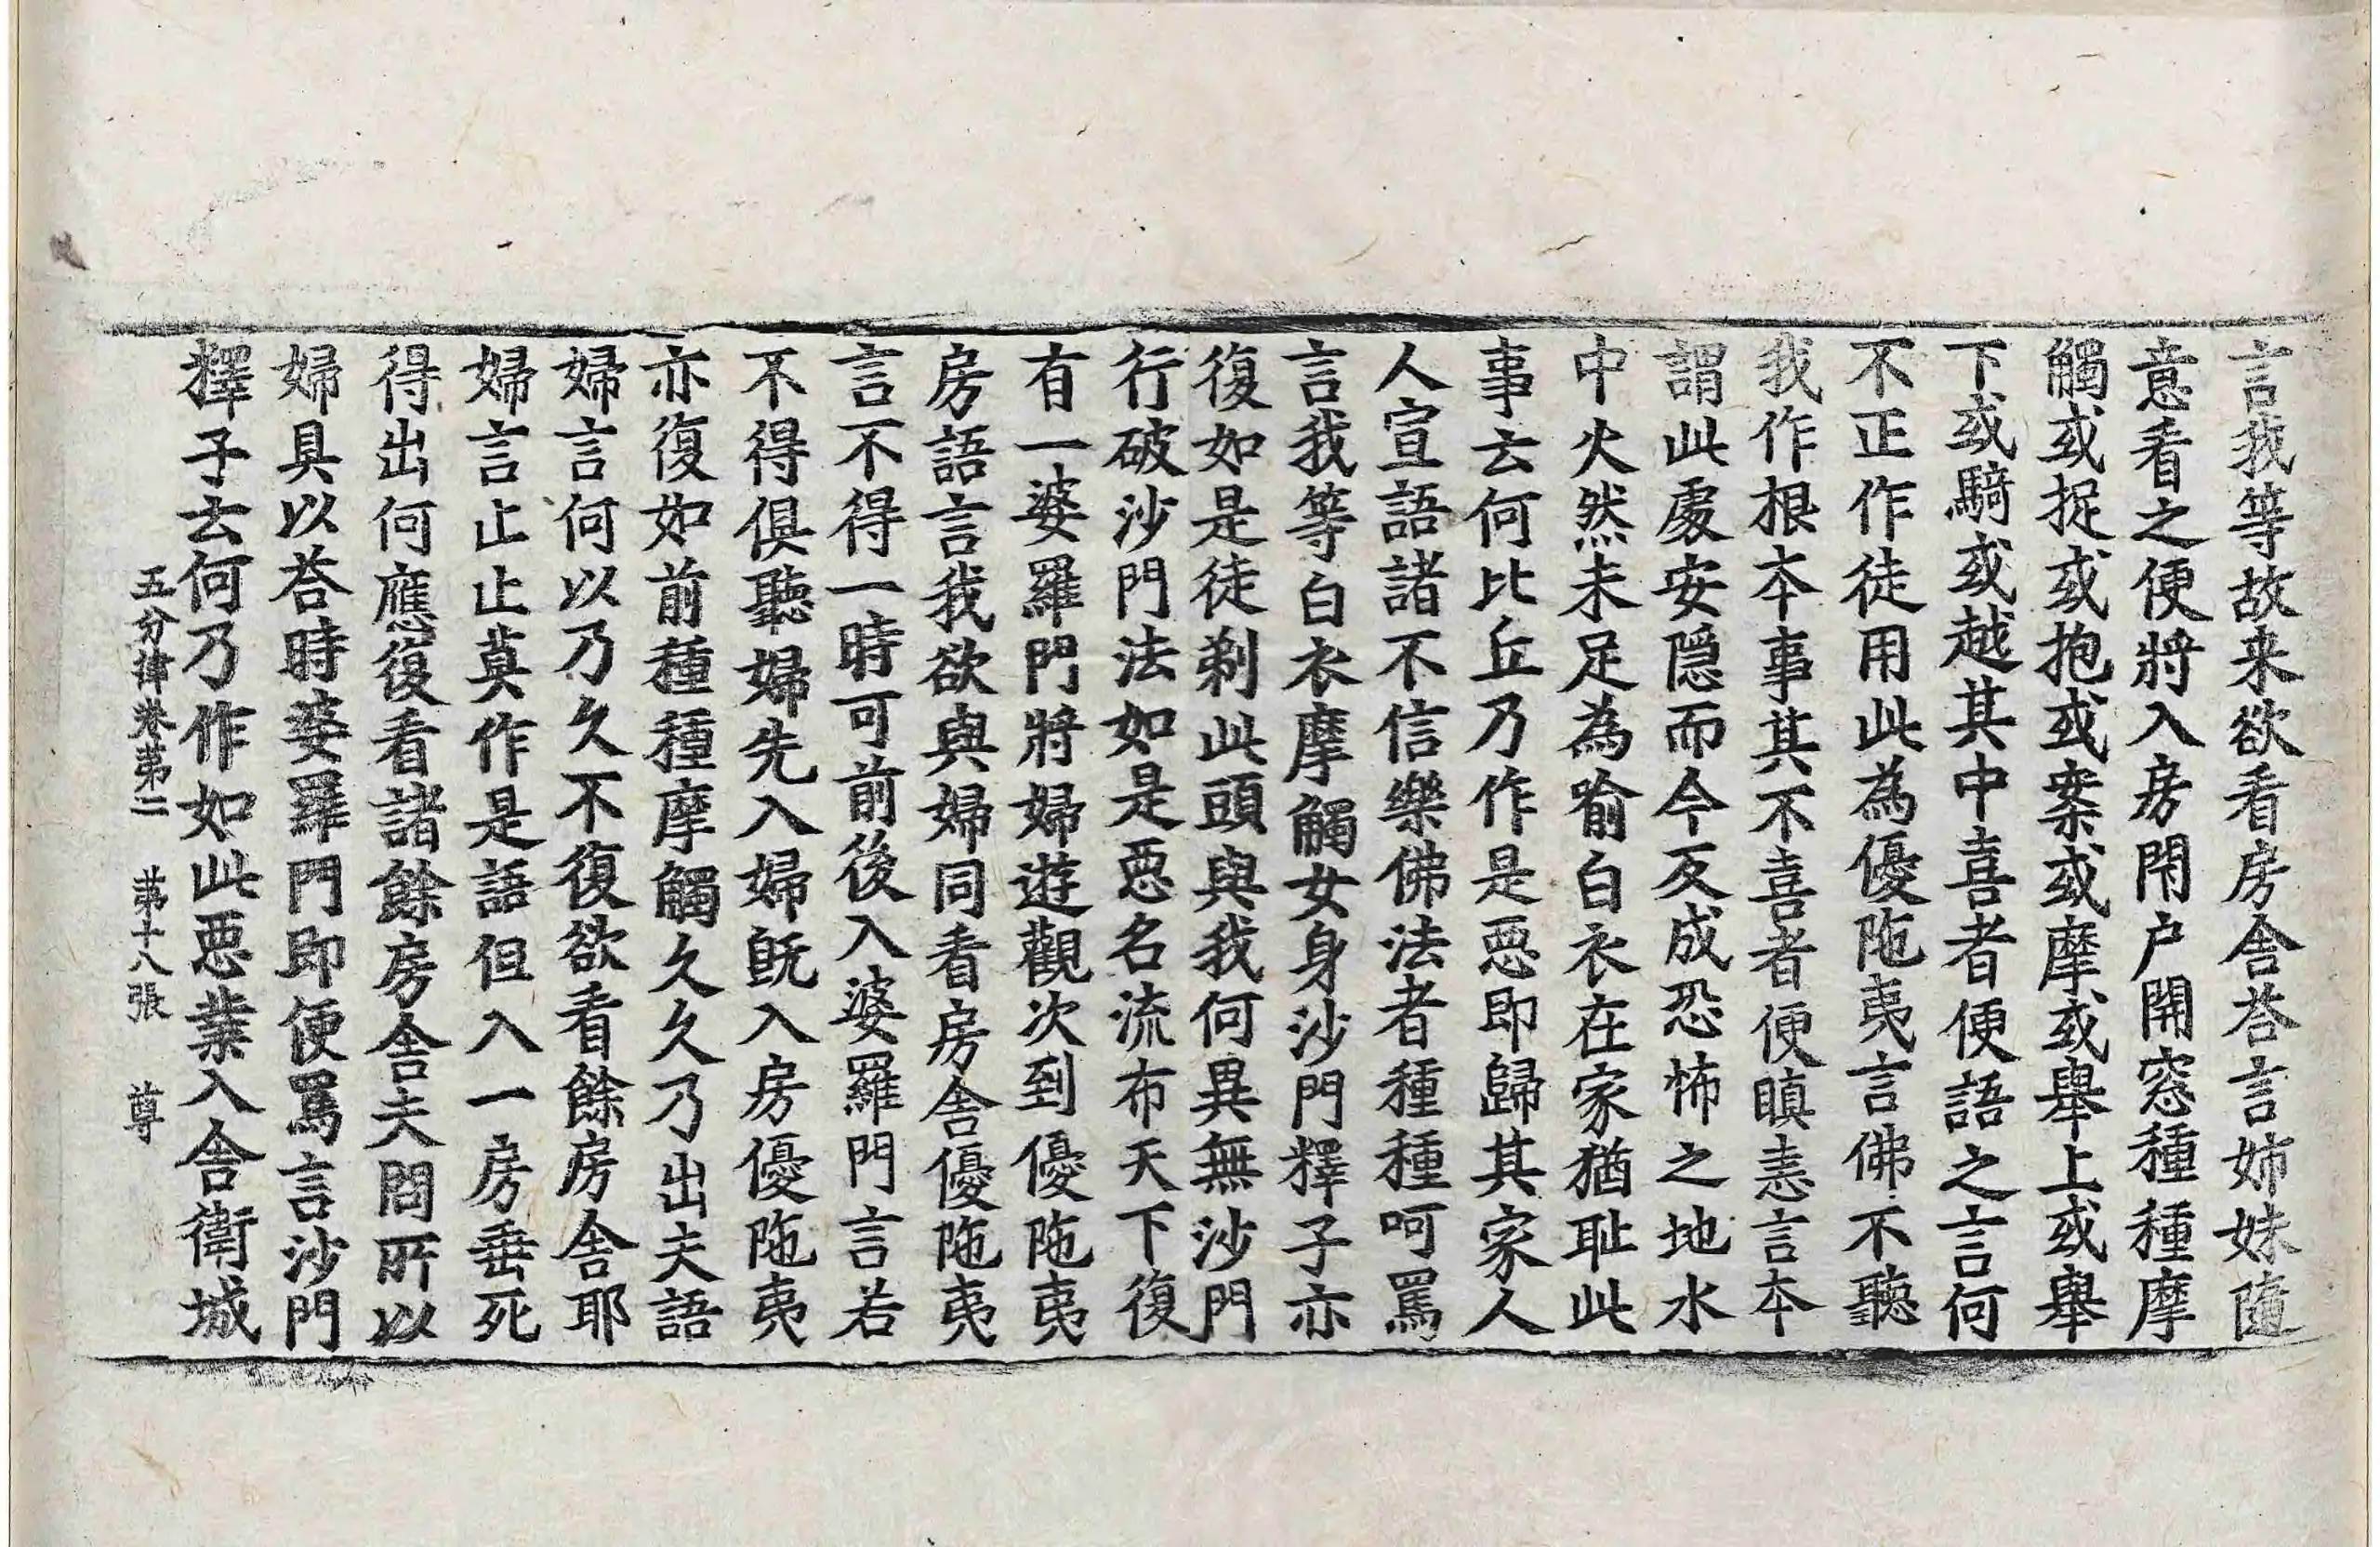 言我等故来欲看房舍荅言姉妹隨
意看之便將入房閇户開窓種種摩
觸或捉或抱或案或摩或舉上或舉
下或騎或越其中喜者便語之言何
不正作徒用此為優陁夷言佛不聽
我作根本事其不喜者便瞋恚言本
謂此處安隱而今反成恐怖之地水
中火然未足為喻白衣在家猶耻此
事去何比丘乃作是惡即歸其家人
人宣語諸不信樂佛法者種種呵罵
言我等白衣摩觸女身沙門釋子亦
復如是徒剃此頭與我何異無沙門
行破沙門法如是惡名流布天下復
有一婆羅門將婦遊觀次到優陁夷
房語言我欲與婦同看房舍優陁夷
言不得一時可前後入婆羅門言若
不得俱聽婦先入婦旣入房優陁夷
亦復如前種種摩觸久久乃出夫語
婦言何以乃久不復欲看餘房舍耶
婦言止止莫作是語但入一房垂死
得出何應復看諸餘房舍夫問所以
婦具以荅時婆羅門即便罵言沙門
釋子去何乃作如此惡業入舍衛城
五分律卷第二 第十八張 尊